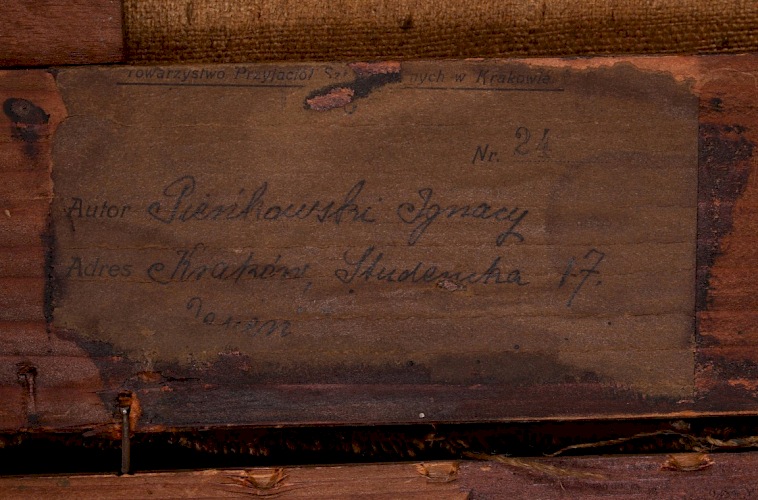 Towarzystwo Przyjaciół nych w Krakowie
Nr. 24
Autor Pieńkowski Ignacy
Adres Kraków, Studencka 17.